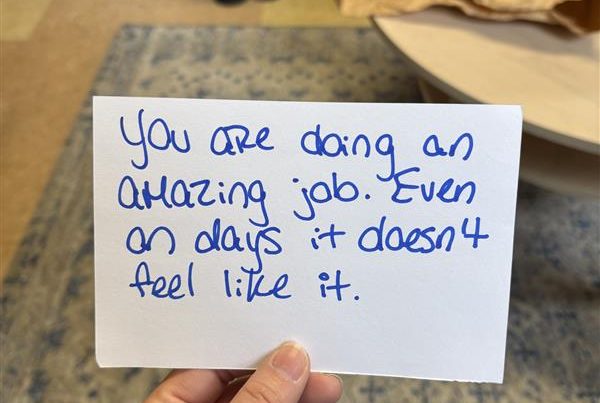 You are doing an
amazing job. Even
on days it doesn't
feel like it.